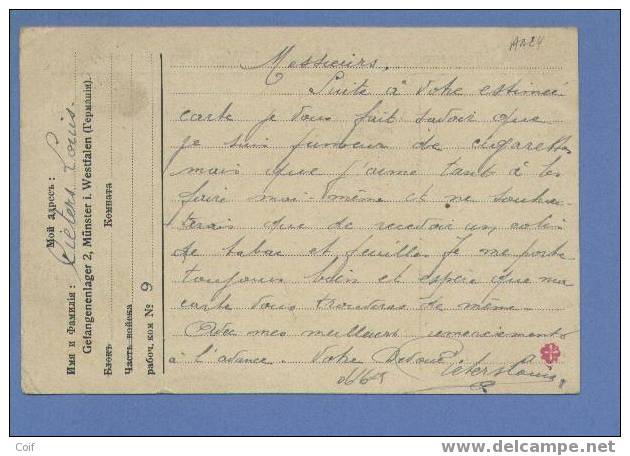 AA24
Мой адресъ:
Имя и Фамилія: Pieters Louis.
Gefangenenlager 2, Münster i. Westfalen (Германія).
Блокъ Комната
Часть войска
рабоч. ком № 9
Messieurs.
Suite à votre estimée
carte je vous fait savoir que
je suis fumeur de cigarettes
mais que j'aime tant à les
faire moi-même et ne souhai-
terais que de recevoir un colis
de tabac et feuilles. Je me porte
toujours bien et espère que ma
carte vous trouveras de même.
Avec mes meilleurs remerciements
à l'avance. Votre Dévoué
Pieters Louis
Coif
www.delcampe.net